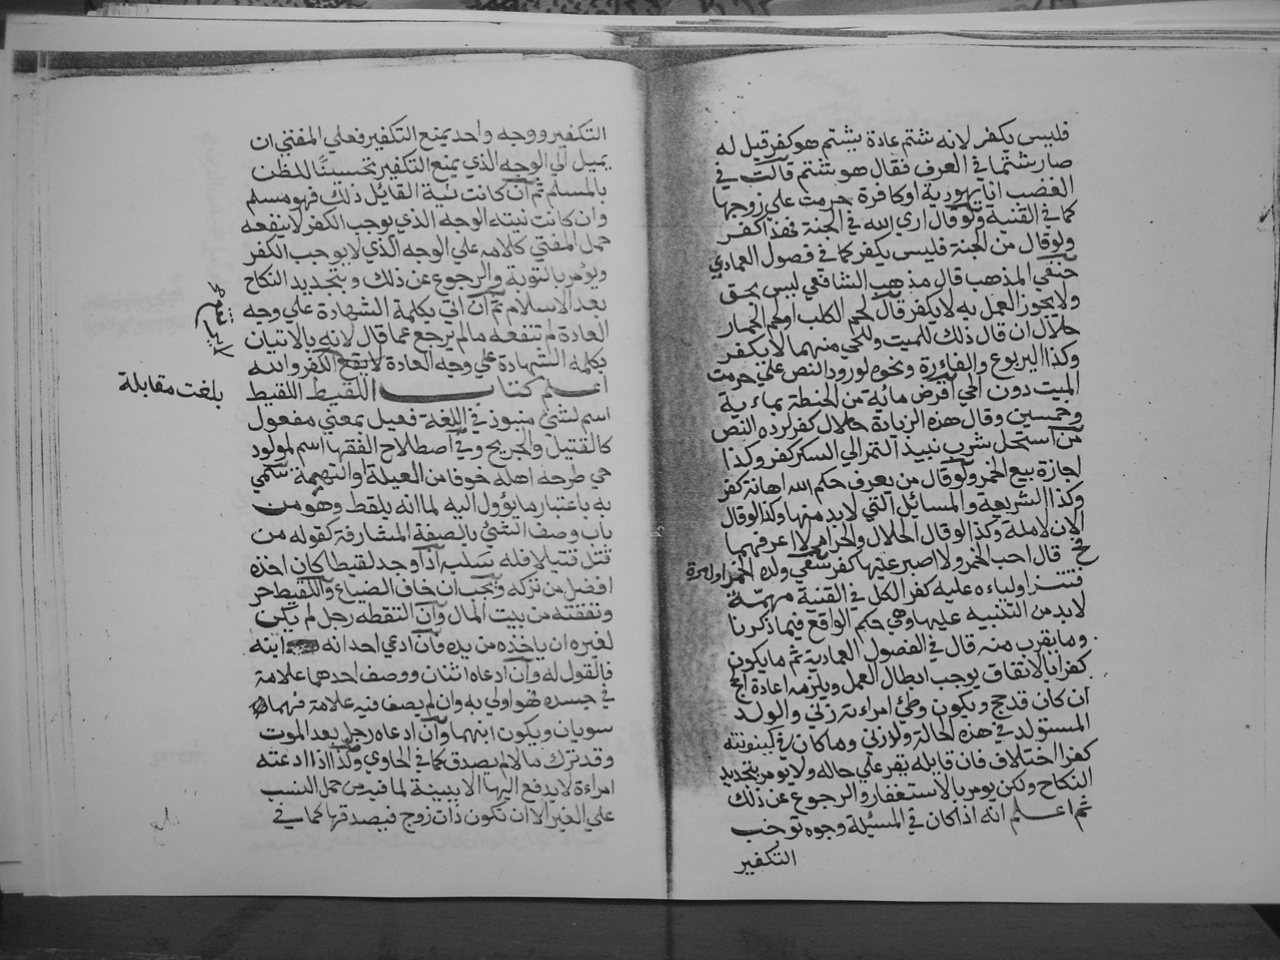 فليس بكفر لانه شتم عادة بشتم هو كفر قيل له
صار شتما في العرف فقال هو شتم قالت في
الغضب انا يهودية او كافرة حرمت علي زوجها
كما في القنية ولو قال اري الله في الجنة فهذا كفر
ولو قال من الجنة فليس بكفر كما في فصول العمادي
حنفي المذهب قال مذهب الشافعي ليس بحق
ولا يجوز العمل به لا يكفر قال لحم الكلب او لحم الحمار
حلال ان قال ذلك للميت وللحي منهما لا يكفر
وكذا اليربوع والفاءرة ونحوه لورود النص علي حرمت
الميت دون الحي اقرض مائة من الحنطة بماءية
وخمسين وقال هذه الزيادة حلال كفر لرده النص
من استحل شرب نبيذ التمر الي السكر كفر وكذا
اجازة بيع الخمر ولو قال من يعرف حكم الله اهانة كفر
وكذا الشريعة والمسائل التي لابد منها وكذا لو قال
الان لاملة وكذا لو قال الحلال والحرام لا اعرفهما
قال احب الخمر ولا اصبر عليها كفر سقي ولده الخمر اول مرة
فنثر اولياءه عليه كفر الكل في القنية مهمة
لابد من التنبيه عليها وهي حكم الواقع فيما ذكرنا
وما يقرب منه قال في الفصول العمادية ثم ما يكون
كفرا بالاتفاق يوجب ابطال العمل ويلزمه اعادة الحج
ان كان قد حج ويكون وطئ امراءته زني والولد
المستولد في هذه الحالة ولد زني وما كان في كينونته
كفرا اختلاف فان قايله يقر علي حاله ولا يومر بتجديد
النكاح ولكن يومر بالاستغفار والرجوع عن ذلك
ثم اعلم انه اذا كان في المسئلة وجوه توجب
التكفير
التكفير ووجه واحد يمنع التكفير فعلي المفتي ان
يميل الي الوجه الذي يمنع التكفير تحسينا للظن
بالمسلم ثم ان كانت نية القائل ذلك فهو مسلم
وان كانت نيته الوجه الذي يوجب الكفر لا ينفعه
حمل المفتي كلامه علي الوجه الذي لا يوجب الكفر
ويؤمر بالتوبة والرجوع عن ذلك وبتجديد النكاح
بعد الاسلام ثم ان اتي بكلمة الشهادة علي وجه
العادة لم تنفعه ما لم يرجع عما قال لانه بالاتيان
بكلمة الشهادة علي وجه العادة لا يقع الكفر والله
اعلم كتاب اللقيط اللقيط
بلغت مقابلة
اسم لشئ منبوذ في اللغة فعيل بمعني مفعول
كالقتيل والجريح وفي اصطلاح الفقها اسم لمولود
حي طرحه اهله خوفا من العيلة او التهمة سمي
به باعتبار ما يؤول اليه لما انه يلقط وهو من
باب وصف الشئ بالصفة المشارفة كقوله من
قتل قتيلا فله سلبه اذا وجد لقيطا كان اخذه
افضل من تركه ويجب ان خاف الضياع واللقيط حر
ونفقته من بيت المال وان التقطه رجل لم يكن
لغيره ان ياخذه من يده فان ادعي احد انه ابنه
فالقول له وان ادعاه اثنان ووصف احدهما علامة
في جسده فهو اولي به وان لم يصف فيه علامة فهما
سويان ويكون ابنهما وان ادعاه رجل بعد الموت
وقد ترك مالا لم يصدق كما في الحاوي وكذا اذا ادعته
امراءة لا يدفع اليها الا ببينة لما فيه من حمل النسب
علي الغير الا ان تكون ذات زوج فيصدقها كما في